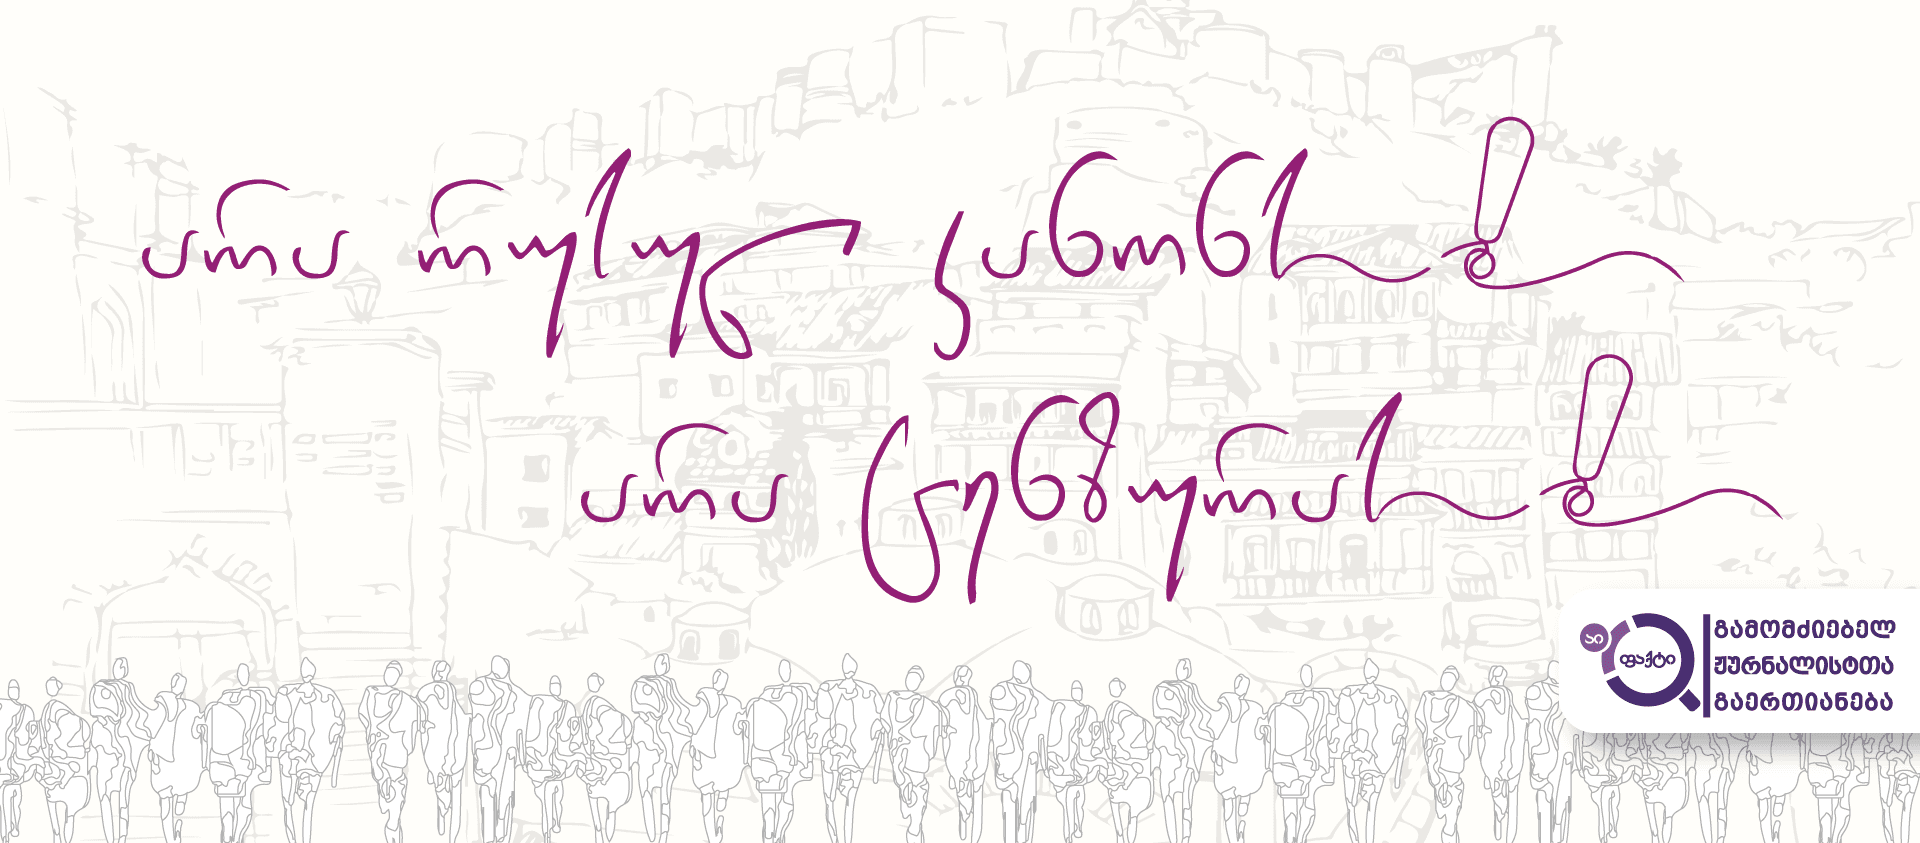 არა რუსულ კანონს!
არა ცენზურას!
აი
ფაქტი
გამომძიებელ
ჟურნალისტთა
გაერთიანება